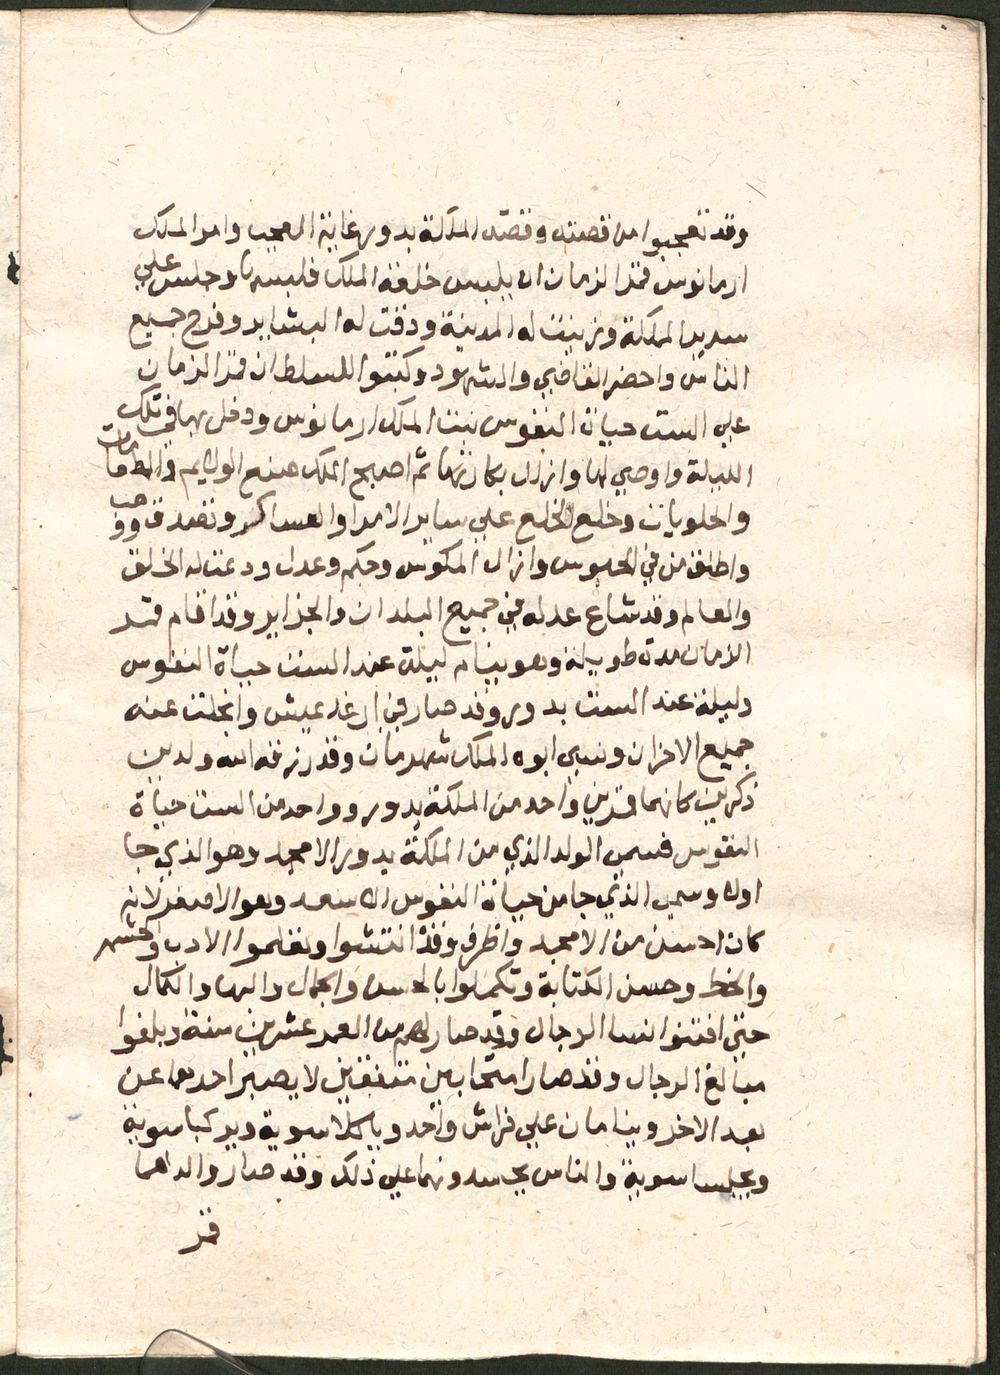 وقد تعجبوا من قصته وقصة الملكة بدور غاية العجب وامر الملك
ارمانوس قمر الزمان ان يلبس خلعة الملك فلبسها وجلس علي
سرير المملكة وزينت له المدينة ودقت له البشاير وفرح جميع
الناس واحضر القاضي والشهود وكتبوا للسلطان قمر الزمان
علي الست حياة النفوس بنت الملك ارمانوس ودخل بها في تلك
الليلة واوصي لها وازال بكارتها ثم اصبح الملك صنع الولايم والطعامات
والحلويات وخلع الخلع علي ساير الامرا والعساكر وتصدق ووهب
واطلق من في الحبوس وازال المكوس وحكم وعدل ودعت له الخلق
والعالم وقد شاع عدله في جميع البلدان والجزاير وقد اقام قمر
الزمان مدة طويلة وهو ينام ليلة عند الست حياة النفوس
وليلة عند الست بدور وقد صار في ارغد عيش وانجلت عنه
جميع الاحزان ونسي ابوه الملك شهرمان وقد رزقه الله ولدين
ذكرين كانهما قمرين واحد من الملكة بدور وواحد من الست حياة
النفوس فسمى الولد الذي من الملكة بدور الامجد وهو الذي جا
اولا وسمي الذي جا من حياة النفوس الاسعد وهو الاصغر لانه
كان احسن من الامجد واظرف وقد انتشوا وتعلموا الادب والحشمه
والخط وحسن الكتابة وتكملوا بالحسن والجمال والبها والكمال
حتي افتنوا النسا الرجال وقد صار لهم من العمر عشرين سنة وبلغوا
مبالغ الرجال وقد صارا متحابين متفقين لا يصبر احدهما عن
بعد الاخر ويناما ن علي فراش واحد وياكلا سوية ويركبا سوية
ويجلسا سوية والناس يحسدونهما علي ذلك وقد صار والدهما
قمر